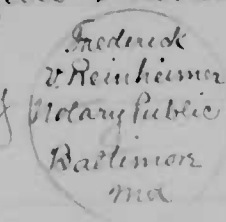 Frederick
V. Reinheimer
Notary Public
Baltimore
Md